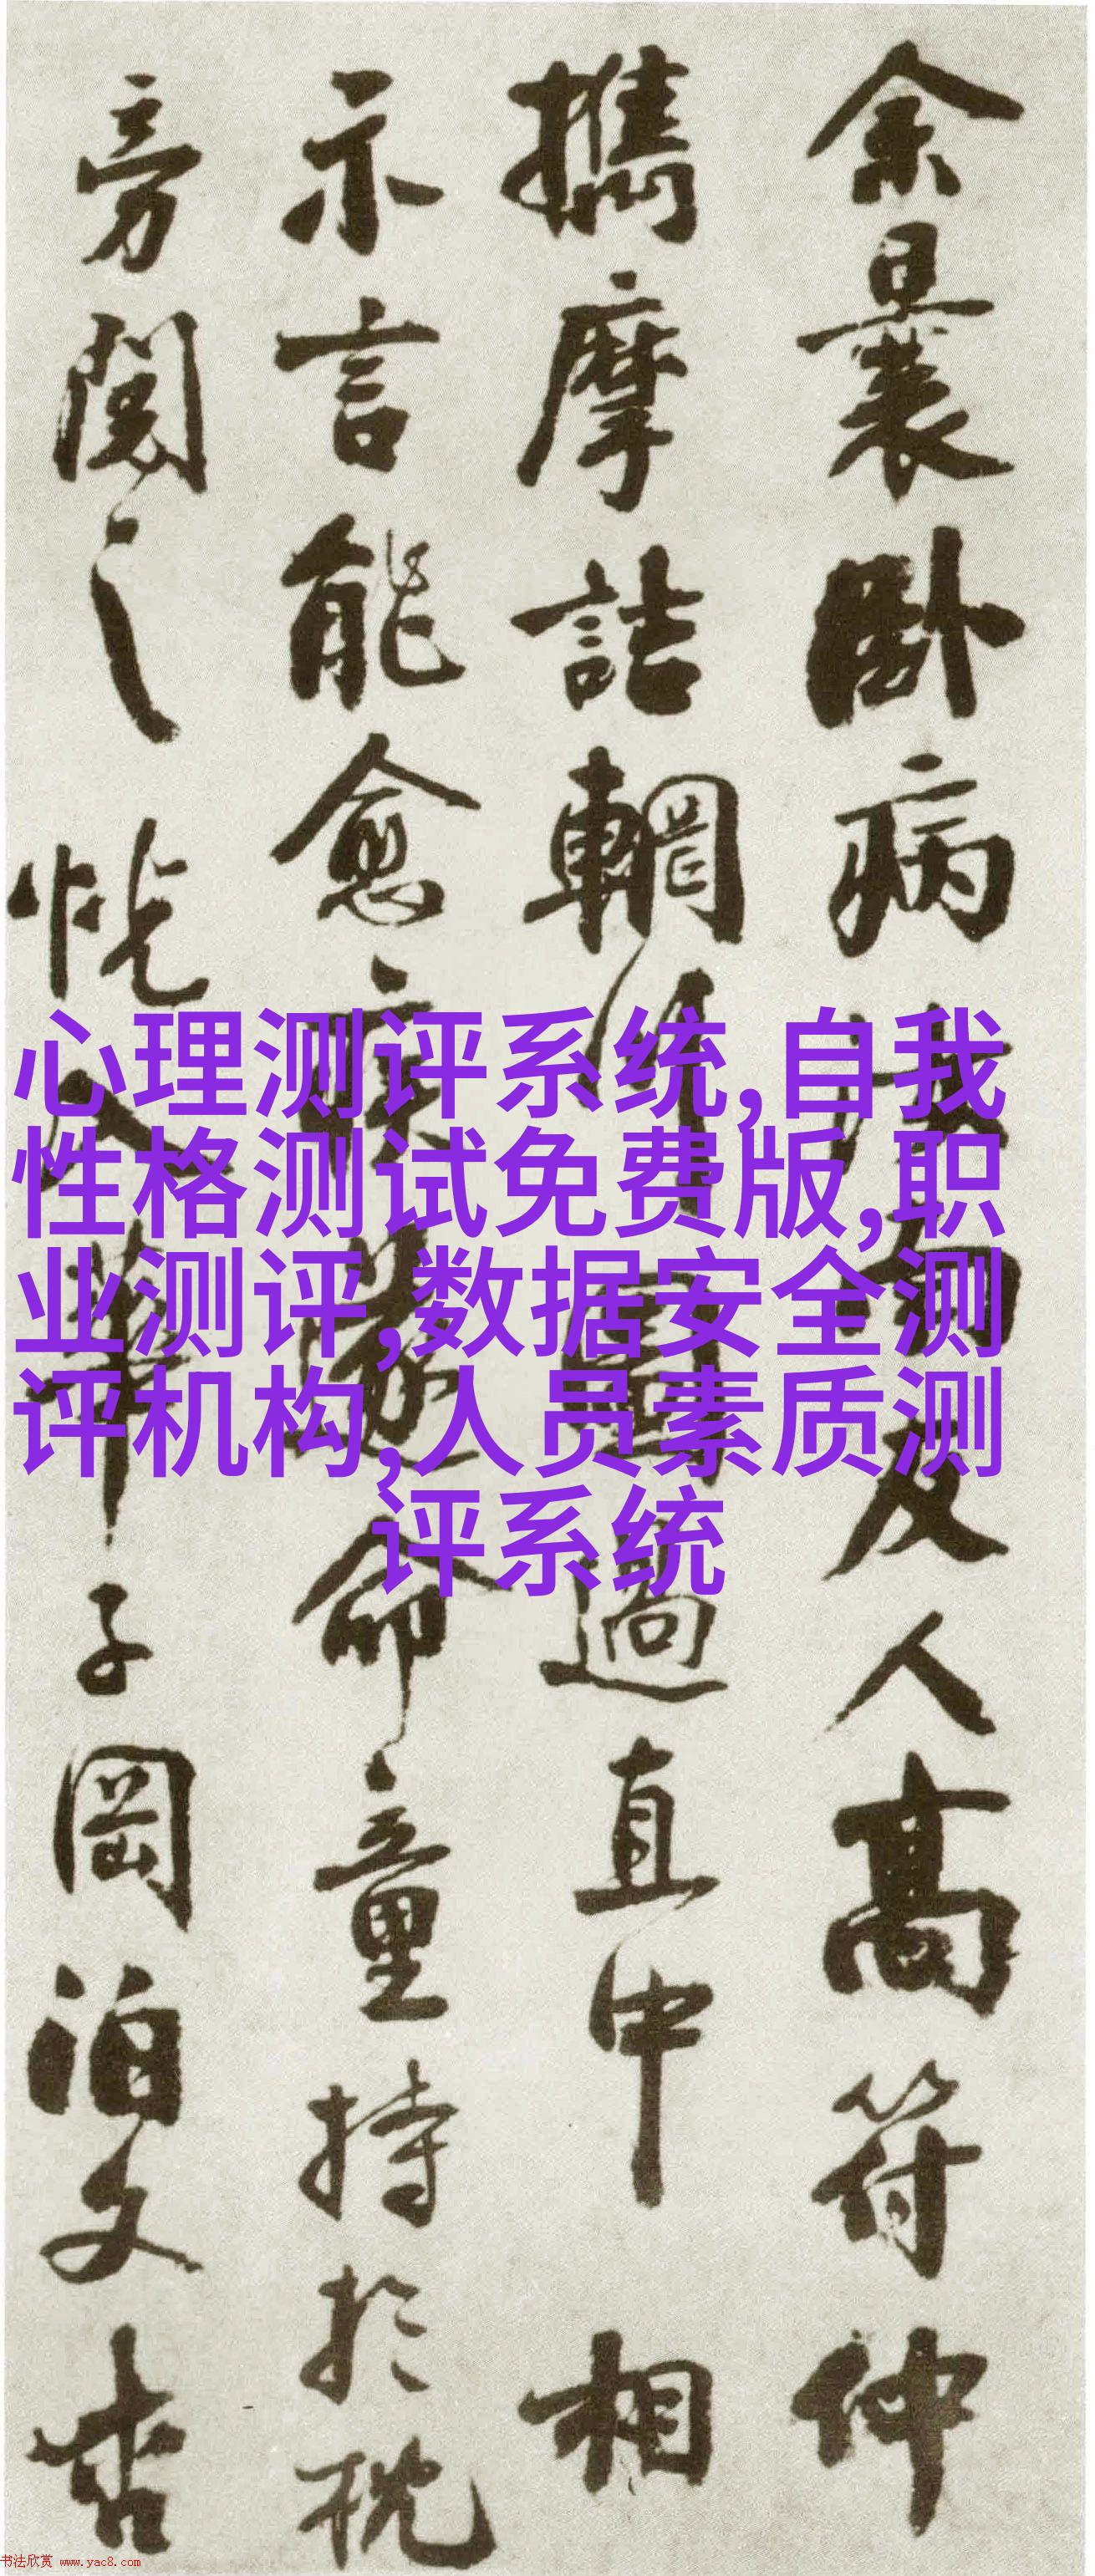 余曩卧病汝南友人高符仲
攜摩詰輞川圖過直中相
示言能愈疾遂命童持於枕
旁閱之恍入華子岡泊文杏
心理测评系统,自我
性格测试免费版,职
业测评,数据安全测
评机构,人员素质测
评系统
书法欣赏 www.yac8.com